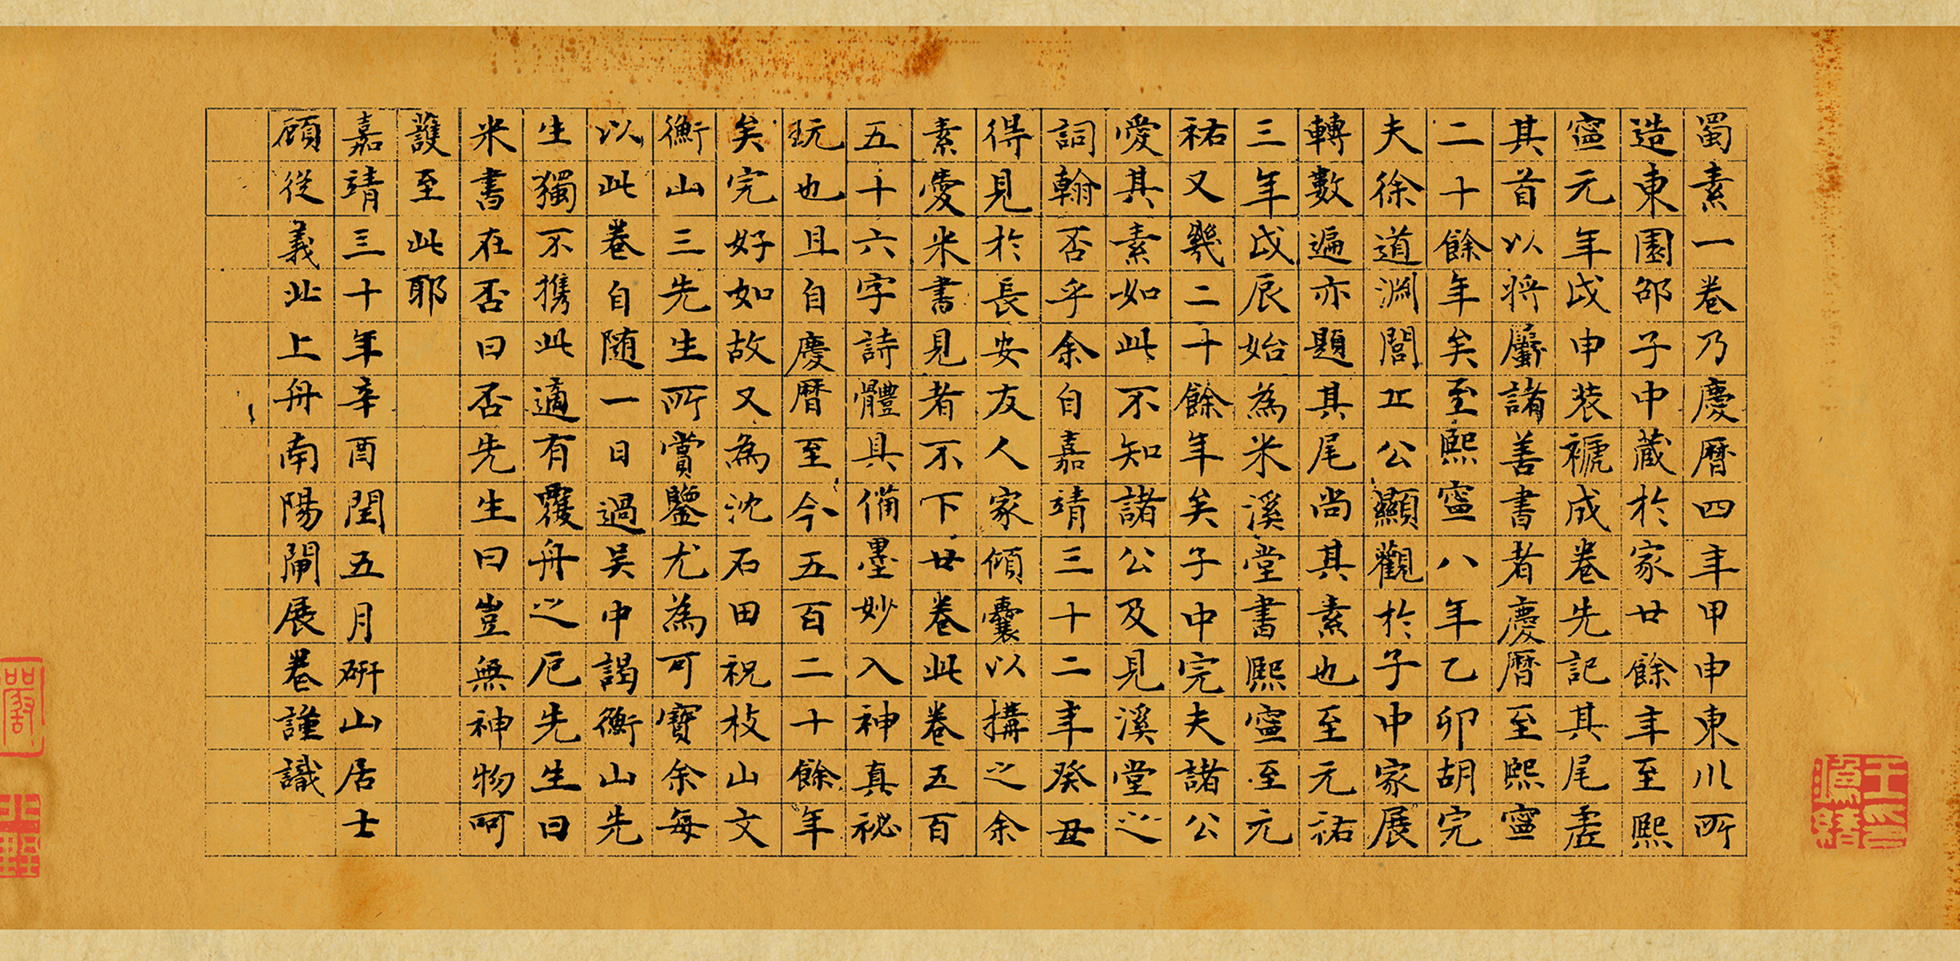 蜀素一卷乃慶曆四年甲申東川所
造東園邵子中蔵於家廿餘年至熙
寧元年戊申装褫成卷先記其尾虚
其首以将屬諸善書者慶曆至熙寧
二十餘年矣至熙寧八年乙卯胡完
夫徐道淵閭丘公顯觀於子中家展
轉數遍亦題其尾尚其素也至元祐
三年戊辰始為米溪堂書熙寧至元
祐又幾二十餘年矣子中完夫諸公
愛其素如此不知諸公及見溪堂之
詞翰否乎余自嘉靖三十二年癸丑
得見於長安友人家傾囊以搆之余
素愛米書見者不下廿卷此卷五百
五十六字詩體具備墨妙入神真祕
玩也且自慶曆至今五百二十餘年
矣完好如故又為沈石田祝枝山文
衡山三先生所賞鑒尤為可寶余每
以此卷自随一日過吴中謁衡山先
生獨不攜此適有覆舟之厄先生曰
米書在否曰否先生曰豈無神物呵
護至此耶
嘉靖三十年辛酉閏五月研山居士
顧從義北上舟南陽閘展卷謹識